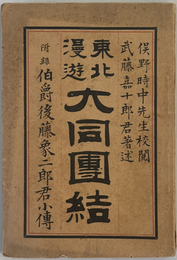 俣野時中先生校閲
武藤嘉十郎君著述
東北
漫遊
大同團結
附錄
伯爵後藤象二郎君小傳